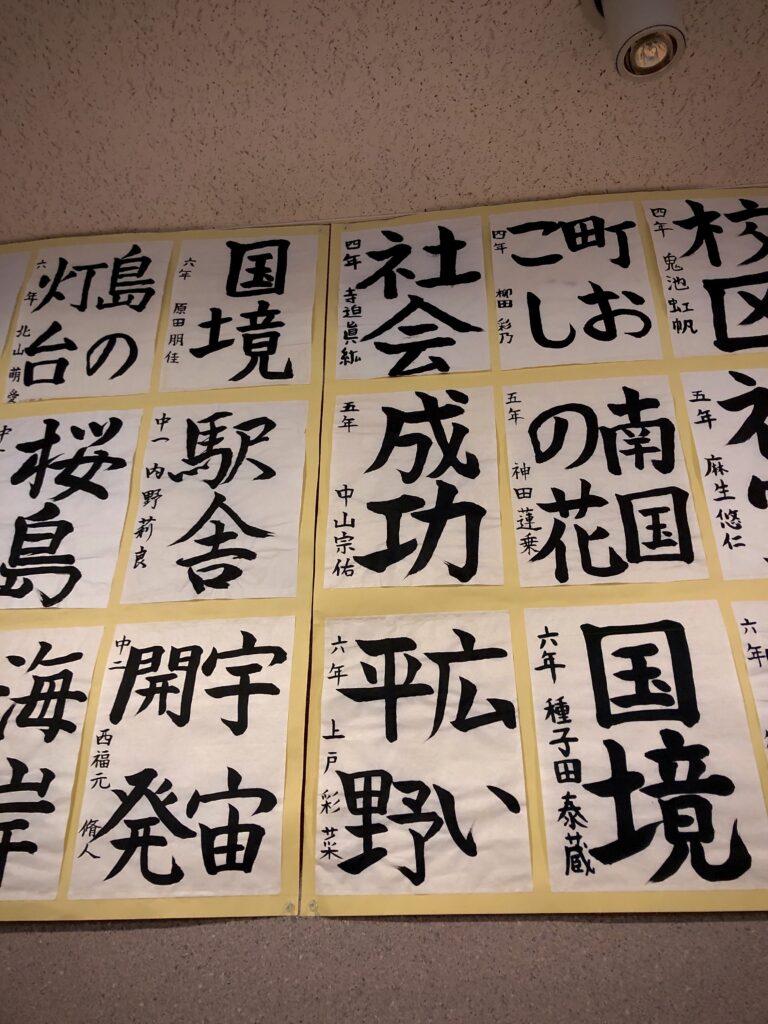 校区
四年 鬼池虹帆
町お
こし
四年 柳田彩乃
社会
四年 寺迫眞紘
国境
六年 原田朋佳
島の
灯台
六年 北山萌愛
五年 麻生悠仁
南国
の花
五年 神田蓮乗
成功
五年 中山宗佑
駅舎
中一 内野莉良
桜島
六年
国境
六年 種子田泰蔵
広い
平野
六年 上戸彩菜
宇宙
開発
中二 西福元脩人
海岸